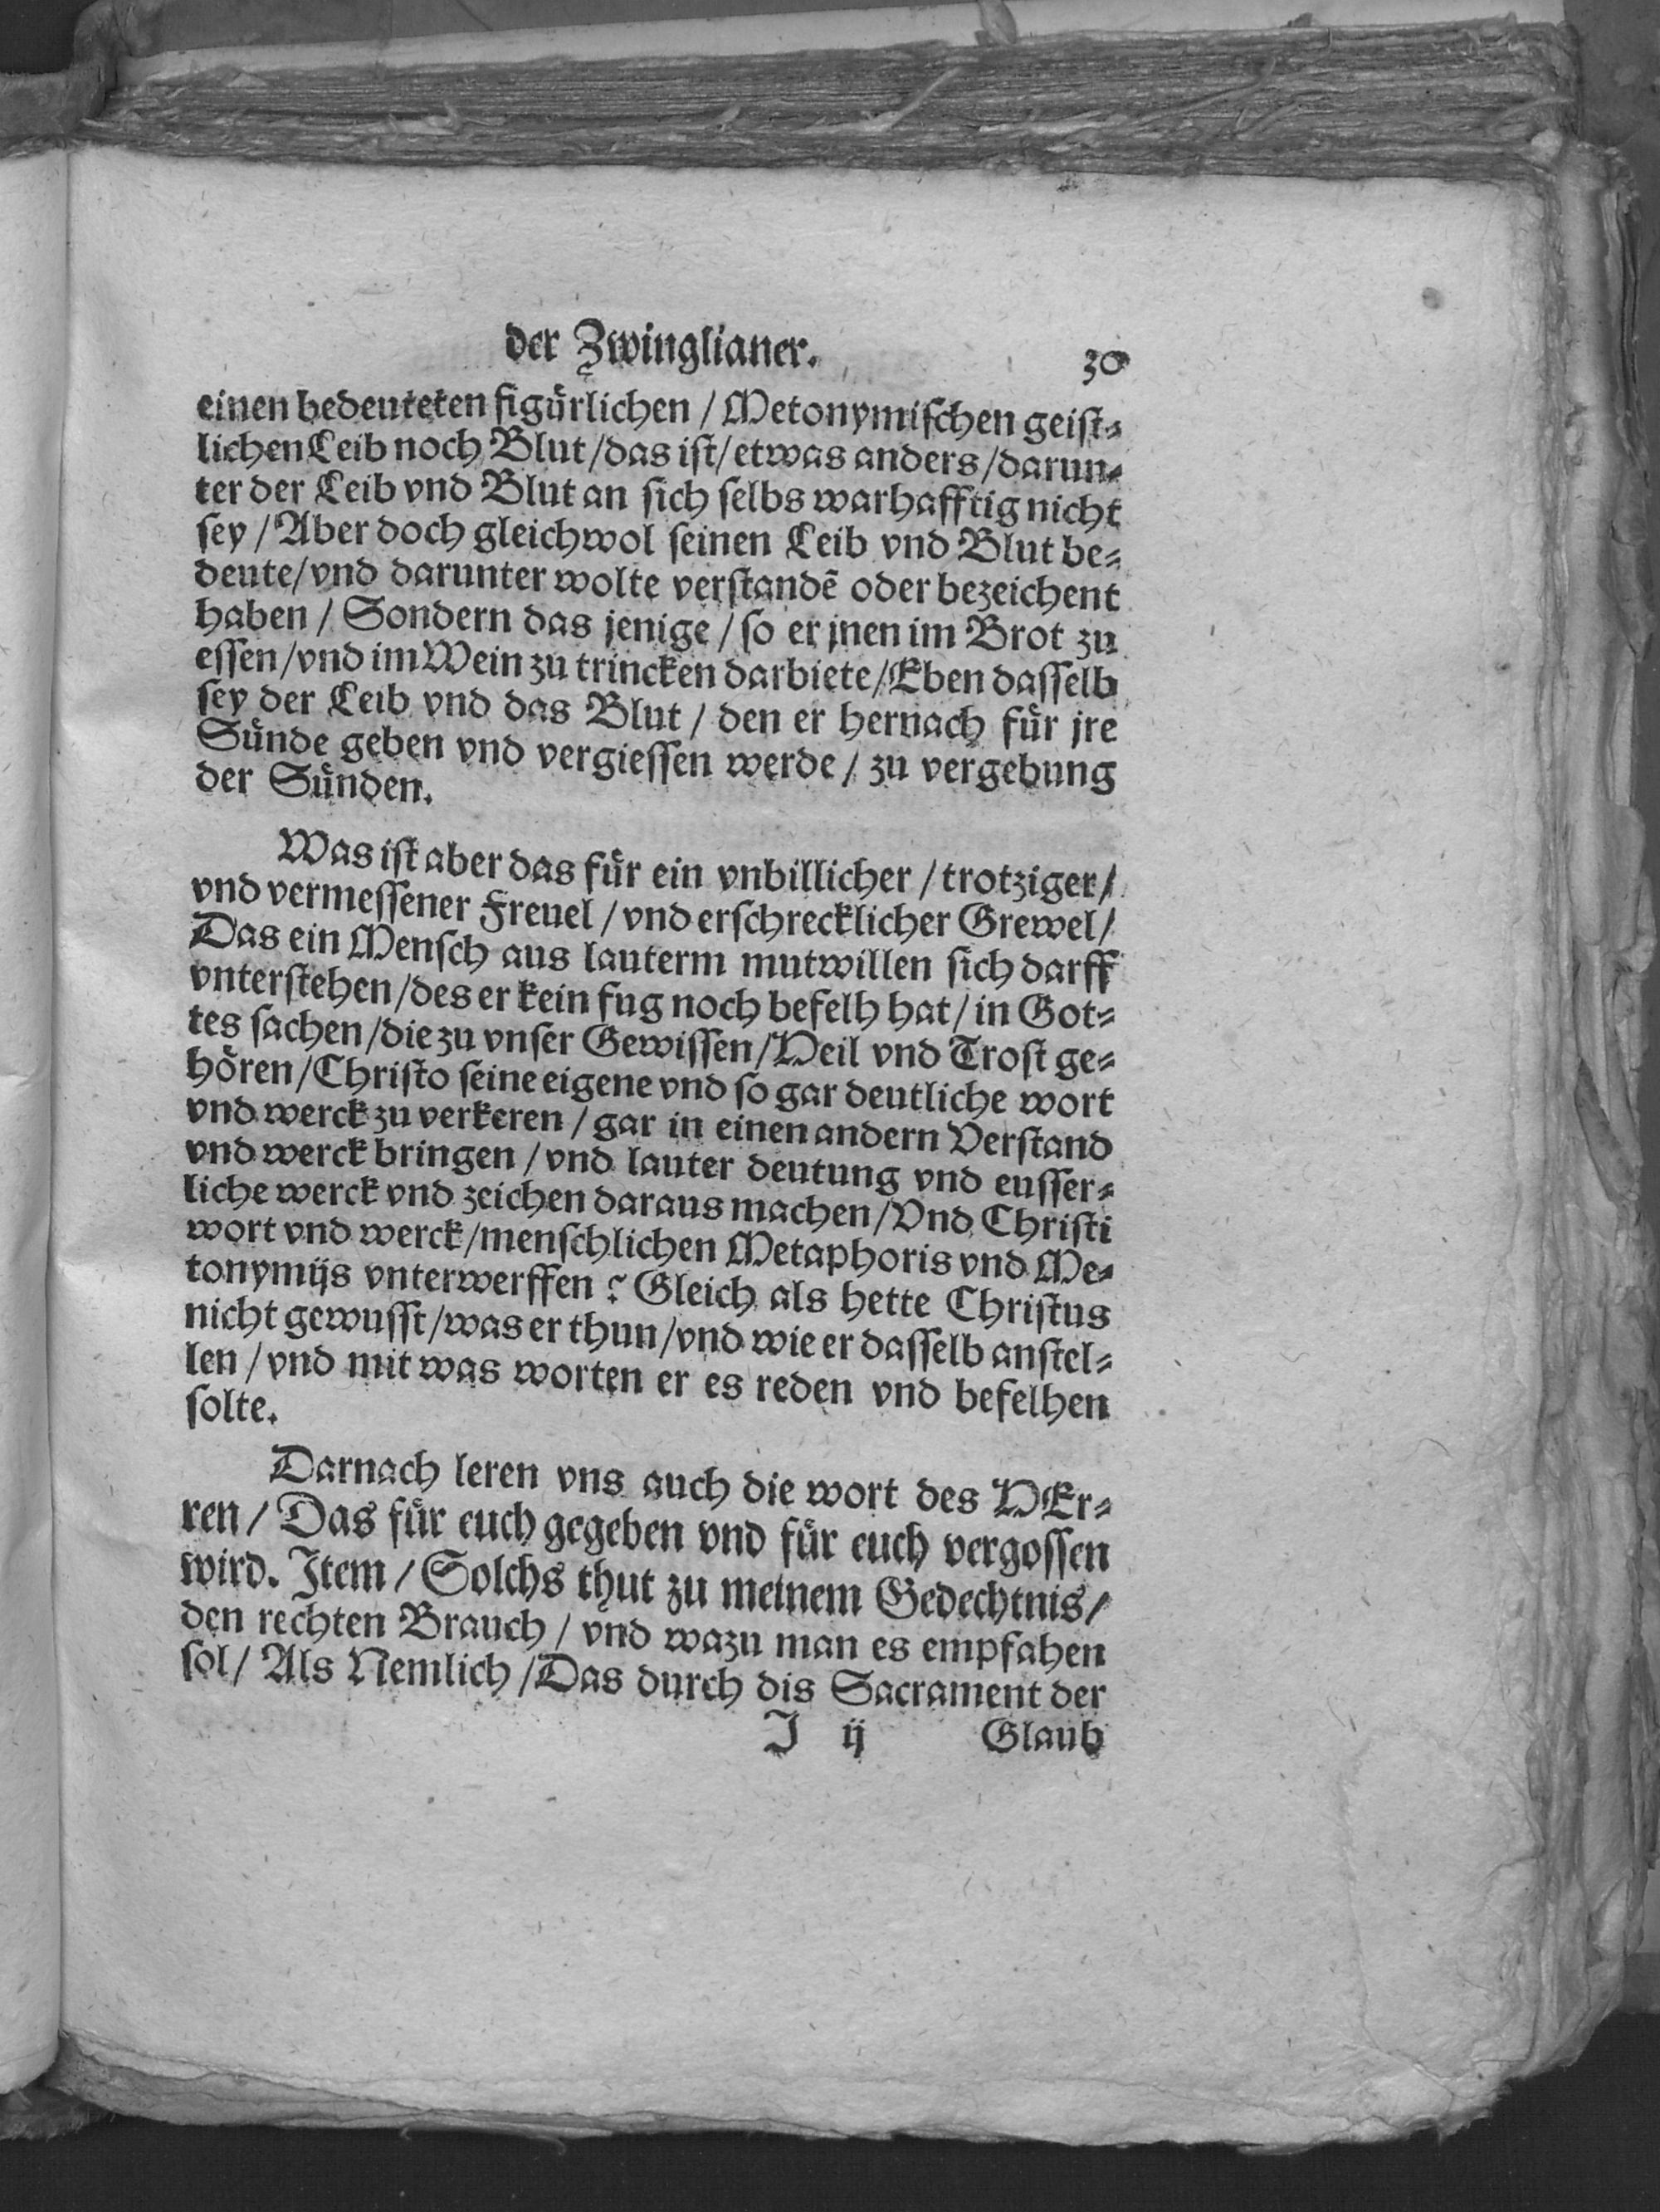 der Zwinglianer. 30
einen bedeuteten figuͤrlichen / Metonymiſchen geiſt⸗
lichen Leib noch Blut /das iſt/ etwas anders /darun⸗
ter der Leib vnd Blut an ſich ſelbs warhafftig nicht
ſey / Aber doch gleichwol ſeinen Leib vnd Blut be⸗
deute/vnd darunter wolte verſtandē oder bezeichent
haben / Sondern das jenige / ſo er jnen im Brot zu
eſſen /vnd im Wein zu trincken darbiete /Eben daſſelb
ſey der Leib vnd das Blut / den er hernach fuͤr jre
Suͤnde geben vnd vergieſſen werde / zu vergebung
der Suͤnden.
Was iſt aber das fuͤr ein vnbillicher / trotziger /
vnd vermeſſener Freuel / vnd erſchrecklicher Grewel /
Das ein Menſch aus lauterm mutwillen ſich darff
vnterſtehen /des er kein fug noch befelh hat / in Got⸗
tes ſachen /die zu vnſer Gewiſſen /Heil vnd Troſt ge⸗
hoͤren /Chriſto ſeine eigene vnd ſo gar deutliche wort
vnd werck zu verkeren / gar in einen andern Verſtand
vnd werck bringen /vnd lauter deutung vnd euſſer⸗
liche werck vnd zeichen daraus machen /Vnd Chriſti
wort vnd werck /menſchlichen Metaphoris vnd Me⸗
tonymijs vnterwerffen ? Gleich als hette Chriſtus
nicht gewuſſt /was er thun /vnd wie er daſſelb anſtel⸗
len /vnd mit was worten er es reden vnd befelhen
ſolte.
Darnach leren vns auch die wort des HEr⸗
ren / Das fuͤr euch gegeben vnd fuͤr euch vergoſſen
wird. Item / Solchs thut zu meinem Gedechtnis /
den rechten Brauch / vnd wazu man es empfahen
ſol / Als Nemlich /Das durch dis Sacrament der
I ij Glaub